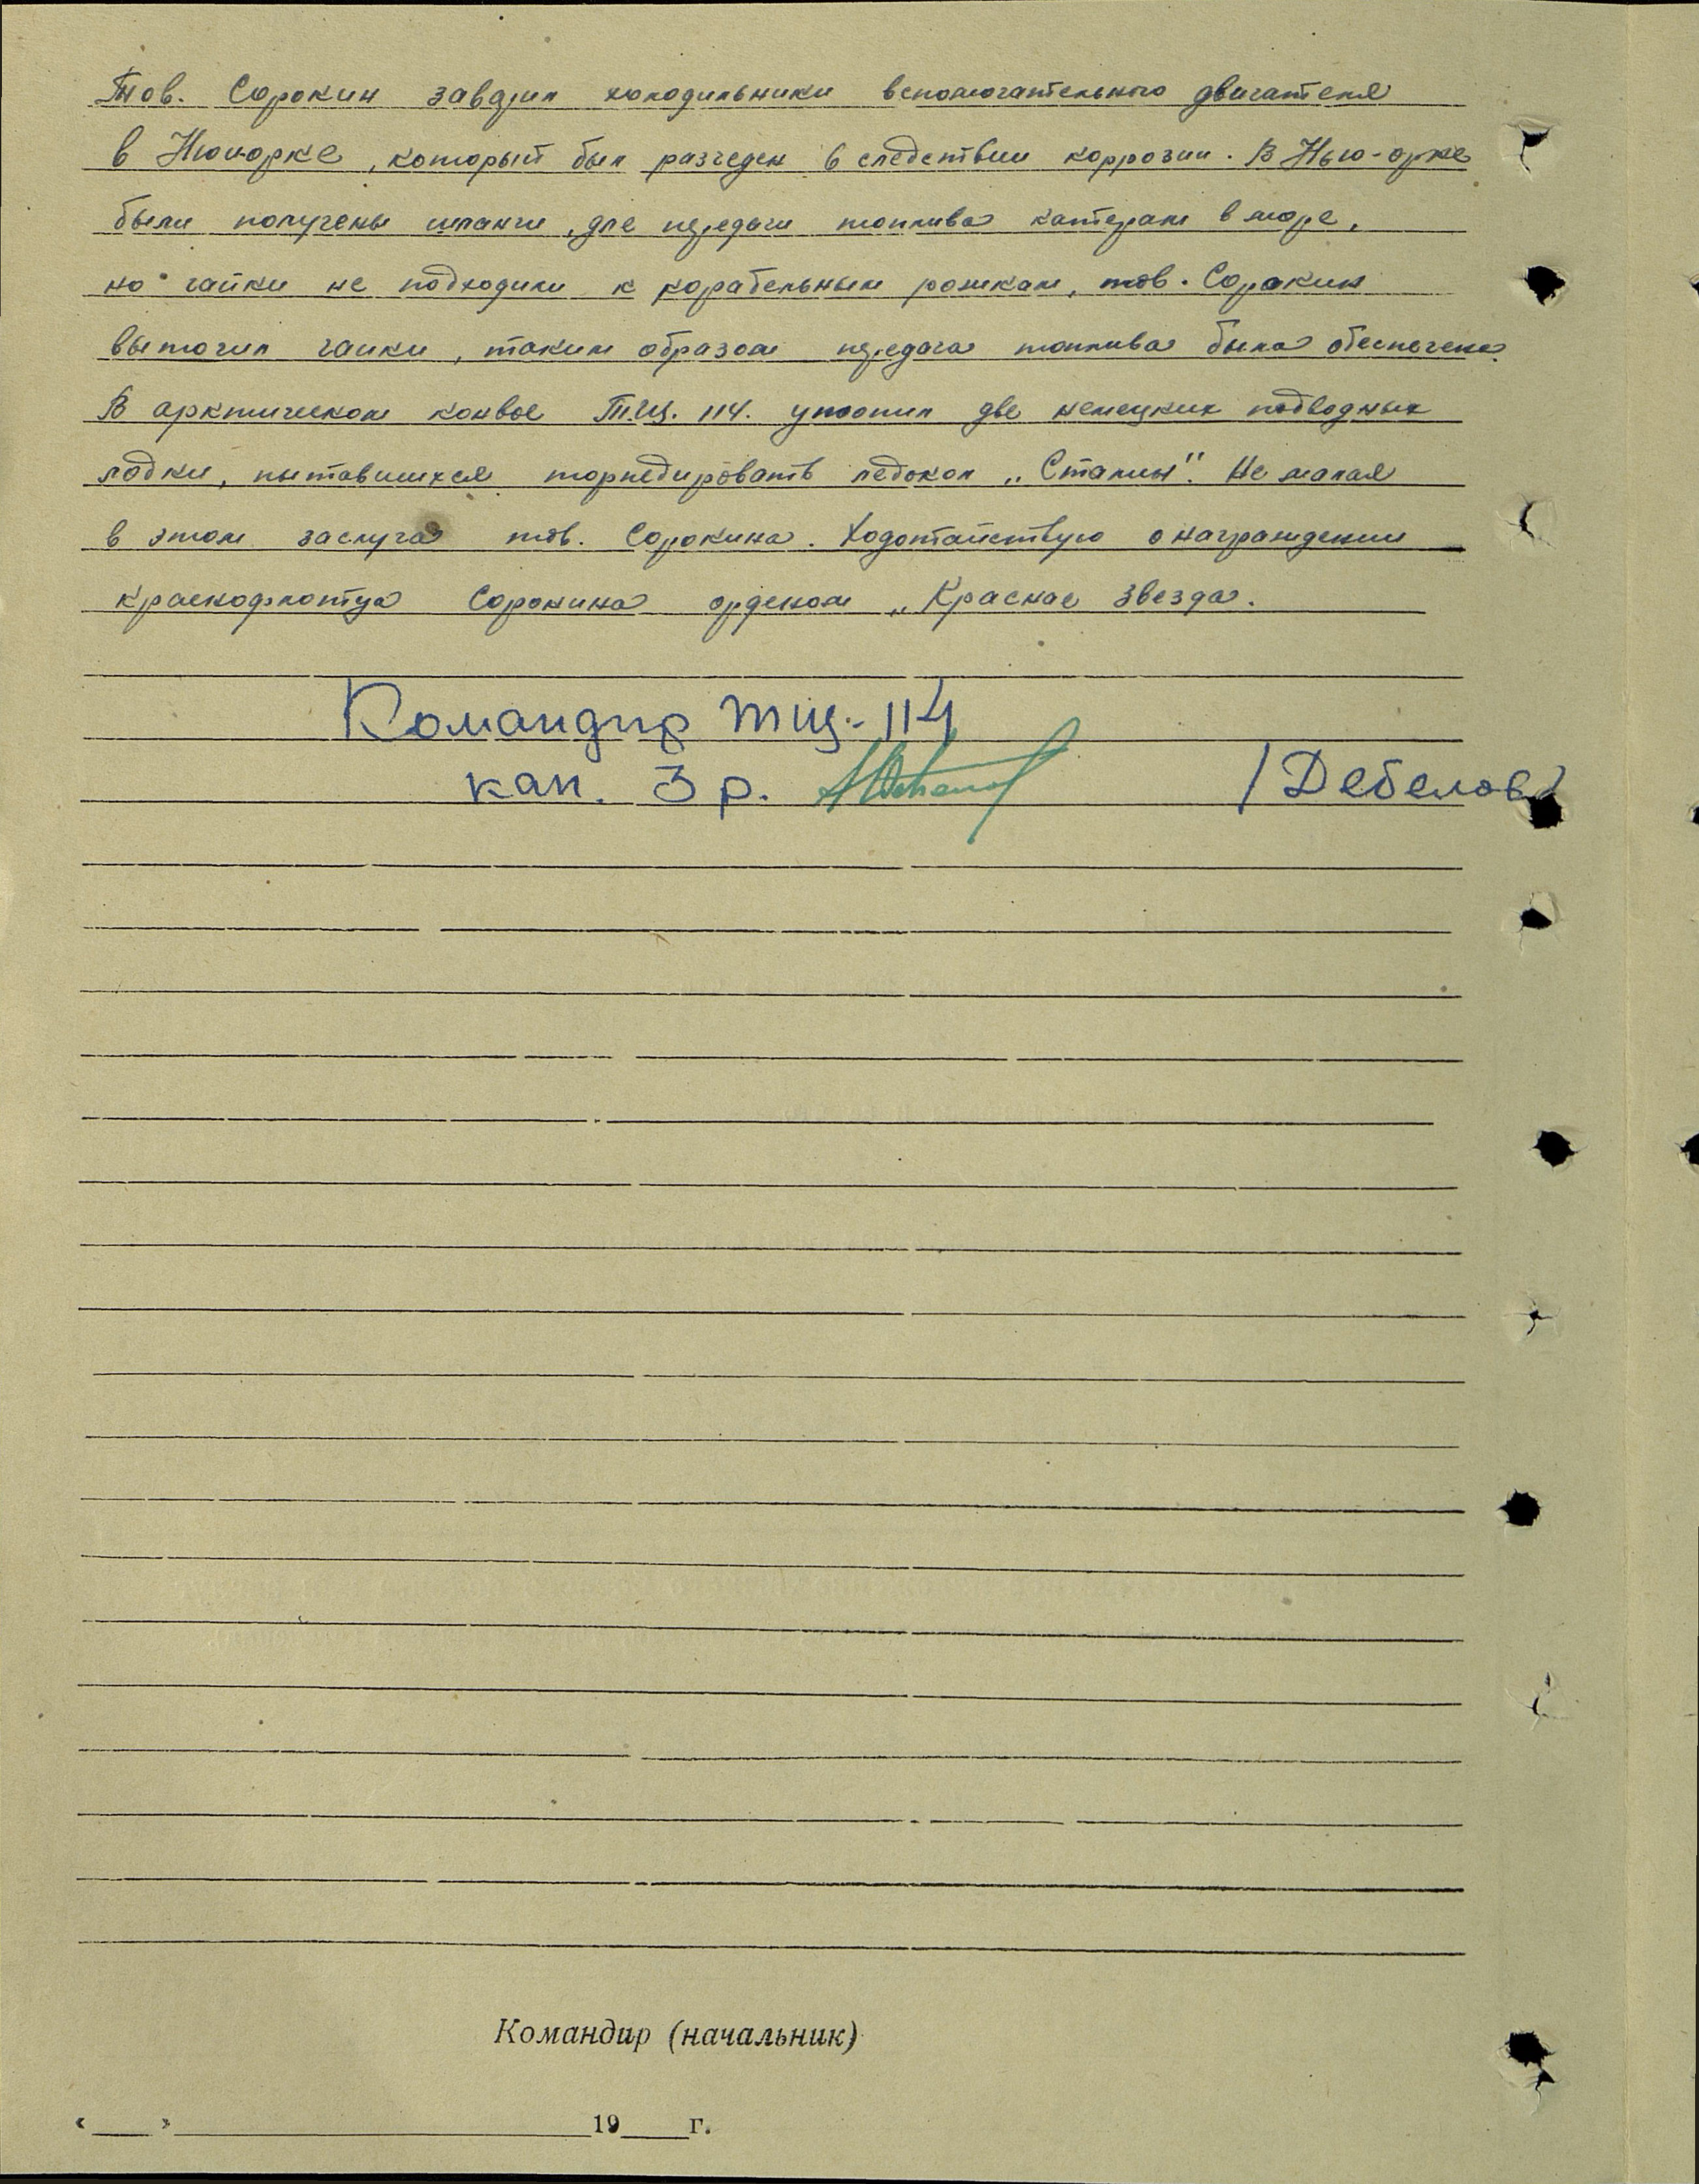 Тов. Сорокин заварил холодильники вспомогательного двигателя
в Нююорке, который был разъеден в следствии коррозии. В Нью-орке
были получены шланги, для передачи топлива катерам в море,
но гайки не подходили к корабельным рожкам, тов. Сорокин
выточил гайки, таким образом передача топлива была обеспечена.
В арктическом конвое Т.Щ. 114. утопил две немецких подводных
лодки, пытавшихся торпедировать ледокол „Сталин". Не малая
в этом заслуга тов. Сорокина. Ходотайствую о награждении
краснофлотца Сорокина орденом „Красная звезда.
Командир тщ-114
кап. 3 р. /Дебелов/
Командир (начальник)
«___» 19___г.